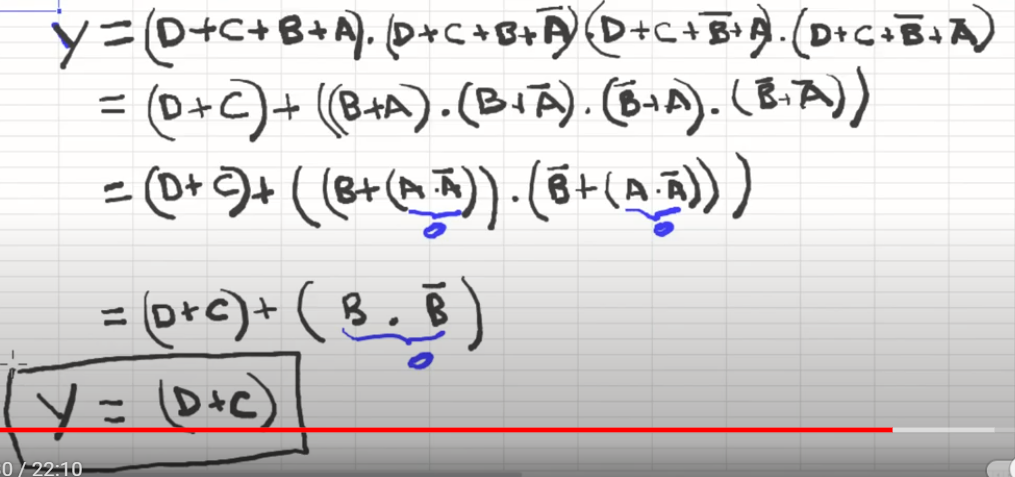 Y = (D+C+B+A).(D+C+B+A̅)(D+C+B̅+A).(D+C+B̅+A̅)
= (D+C)+((B+A).(B+A̅).(B̅+A).(B̅+A̅))
= (D+C)+((B+(A.A̅)).(B̅+(A.A̅)))
0 0
= (D+C)+(B.B̅)
0
Y = (D+C)
0 / 22:10